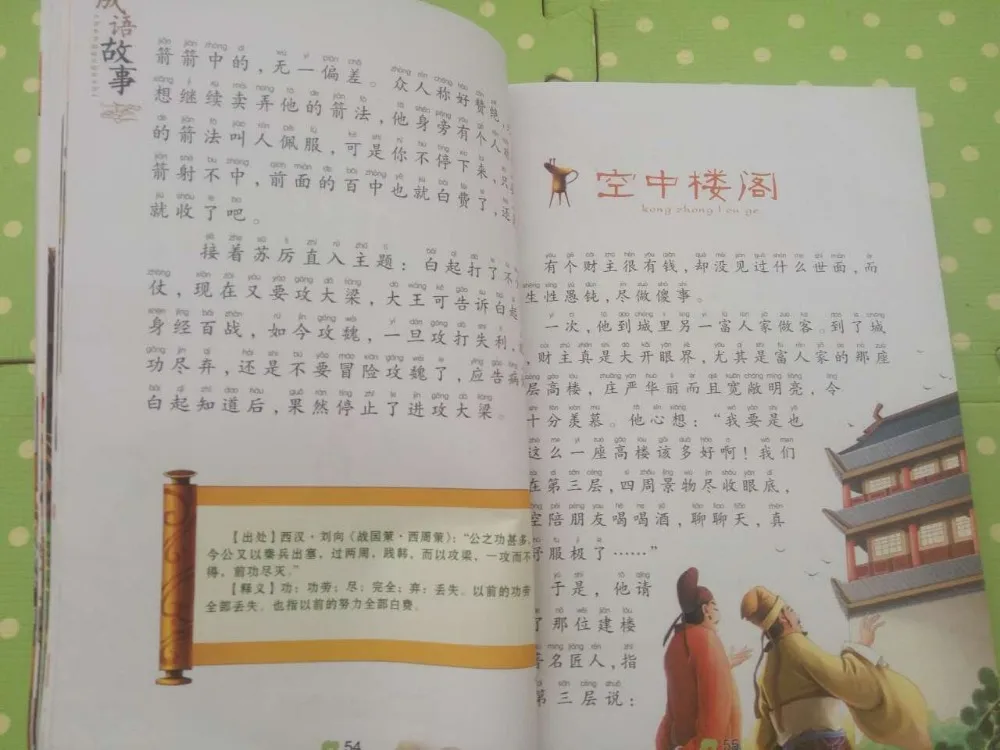 成语故事
箭箭中的，无一偏差。众人称好赞绝，
想继续卖弄他的箭法，他身旁有个人
的箭法叫人佩服，可是你不停下来，只
箭射不中，前面的百中也就白费了，还
就收了吧。
接着苏厉直入主题：白起打了不
仗，现在又要攻大梁，大王可告诉白起
身经百战，如今攻魏，一旦攻打失利，
功尽弃，还是不要冒险攻魏了，应告病
白起知道后，果然停止了进攻大梁。
【出处】西汉·刘向《战国策·西周策》：“公之功甚多，
今公又以秦兵出塞，过两周，践韩，而以攻梁，一攻而不
得，前功尽灭。”
【释义】功：功劳；尽：完全；弃：丢失。以前的功劳
全部丢失。也指以前的努力全部白费。
54
空中楼阁
kong zhong lou ge
有个财主很有钱，却没见过什么世面，而
生性愚钝，尽做傻事。
一次，他到城里另一富人家做客。到了城
，财主真是大开眼界，尤其是富人家的那座
层高楼，庄严华丽而且宽敞明亮，令
十分羡慕。他心想：“我要是也
这么一座高楼该多好啊！我们
在第三层，四周景物尽收眼底，
空陪朋友喝喝酒，聊聊天，真
舒服极了……”
于是，他请
了那位建楼
著名匠人，指
第三层说：
55